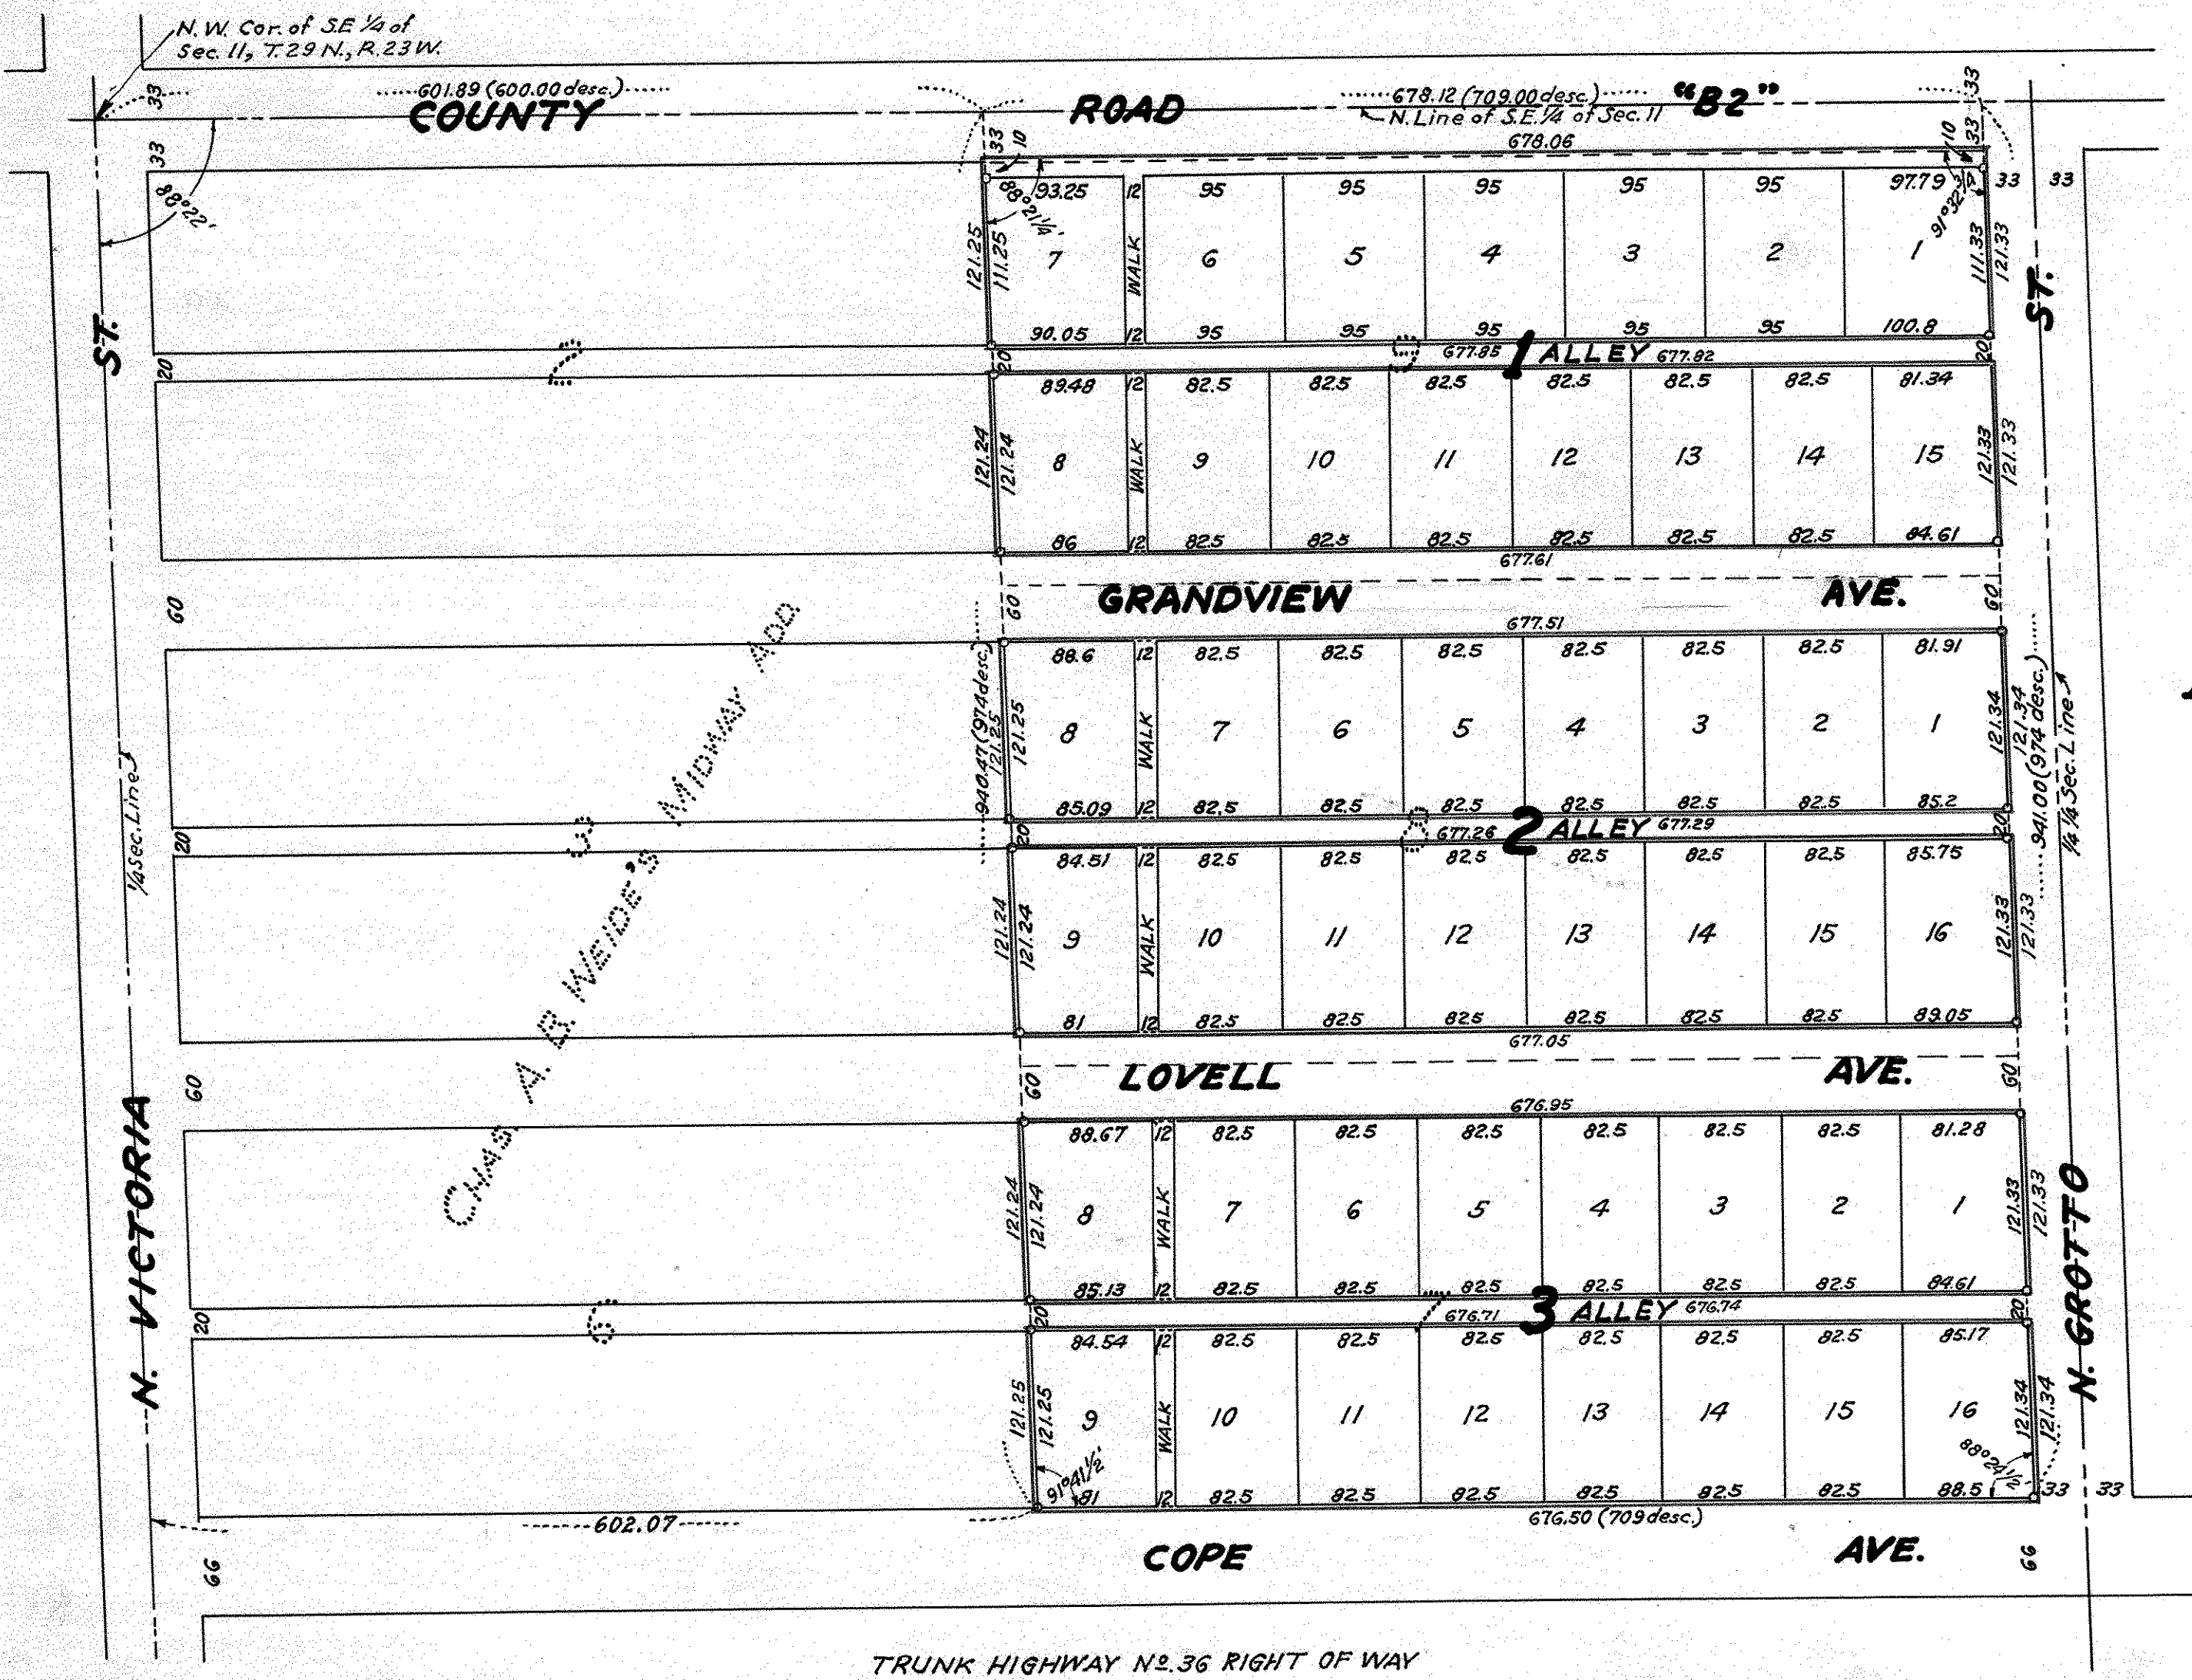 N.W. Cor. of S.E ¼ of
Sec. 11, T.29 N., R.23 W.
601.89 (600.00 desc.)
678.12 (709.00 desc.)
COUNTY ROAD "B2"
N. Line of S.E. ¼ of Sec. 11
678.06
33 33 33 10 10 33 33 33 33
88°22'
88°21¼'
93.25 12 95 95 95 95 95 97.79
121.25 111.25 7 WALK 6 5 4 3 2 1 111.33 121.33
90.05 12 95 95 95 95 95 100.8
ST. ST.
20 2 20 9 677.85 1 ALLEY 677.82 20
89.48 12 82.5 82.5 82.5 82.5 82.5 82.5 81.34
121.24 121.24 8 WALK 9 10 11 12 13 14 15 121.33 121.33
86 12 82.5 82.5 82.5 82.5 82.5 82.5 84.61
677.61
60 60 GRANDVIEW AVE. 60
677.51
88.6 12 82.5 82.5 82.5 82.5 82.5 82.5 81.91
940.47 (974 desc.)
121.25 121.25 8 WALK 7 6 5 4 3 2 1 121.34 121.34
941.00 (974 desc.)
¼ ¼ Sec. Line
¼ Sec. Line
85.09 12 82.5 82.5 82.5 82.5 82.5 82.5 85.2
20 3 20 8 677.26 2 ALLEY 677.29 20
84.51 12 82.5 82.5 82.5 82.5 82.5 82.5 85.75
121.24 121.24 9 WALK 10 11 12 13 14 15 16 121.33 121.33
81 12 82.5 82.5 82.5 82.5 82.5 82.5 89.05
677.05
CHAS. A. B. WEIDE'S MIDWAY ADD.
60 60 LOVELL AVE. 60
676.95
88.67 12 82.5 82.5 82.5 82.5 82.5 82.5 81.28
121.24 121.24 8 WALK 7 6 5 4 3 2 1 121.33 121.33
85.13 12 82.5 82.5 82.5 82.5 82.5 82.5 84.61
N. VICTORIA
N. GROTTO
20 6 20 7 676.71 3 ALLEY 676.74 20
84.54 12 82.5 82.5 82.5 82.5 82.5 82.5 85.17
121.25 121.25 9 WALK 10 11 12 13 14 15 16 121.34 121.34
91°41½' 88°24½'
81 12 82.5 82.5 82.5 82.5 82.5 82.5 88.5 33 33
602.07
676.50 (709 desc.)
66 COPE AVE. 66
TRUNK HIGHWAY Nº. 36 RIGHT OF WAY